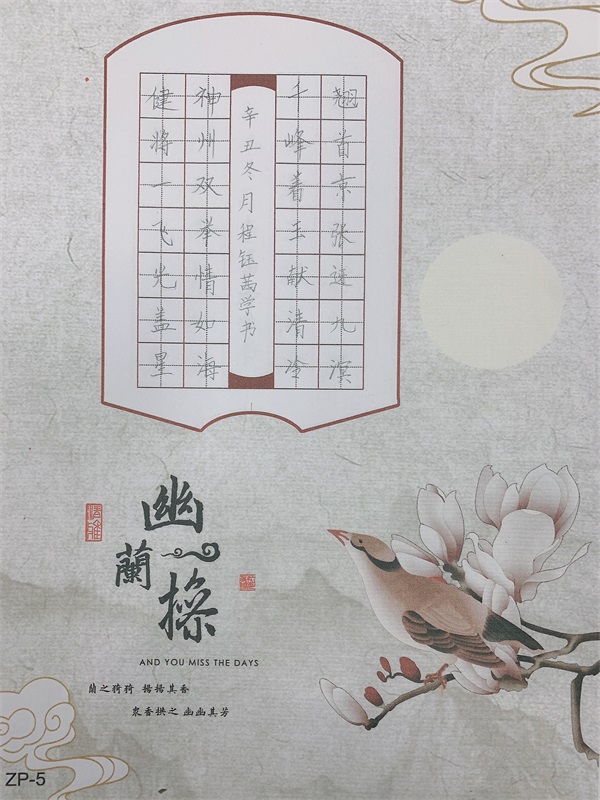 翘首京张连九溟
千峰着玉献清冷
辛丑冬月程钰茜学书
神州双举情如海
健将一飞光盖星
幽蘭操
AND YOU MISS THE DAYS
蘭之猗猗 揚揚其香
眾香拱之 幽幽其芳
ZP-5